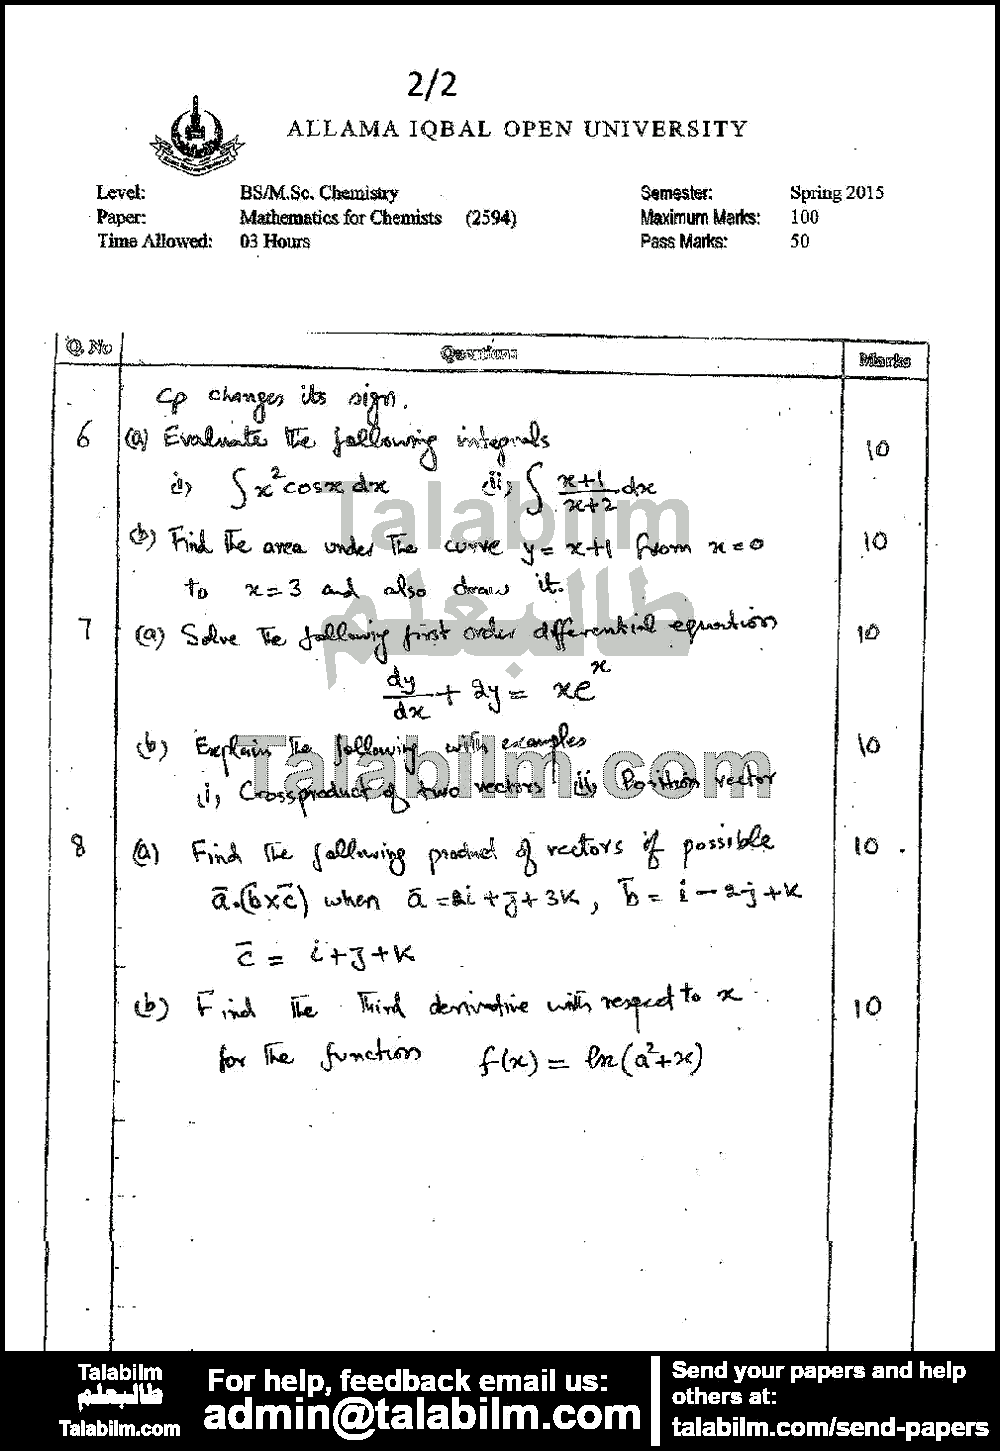 2/2
ALLAMA IQBAL OPEN UNIVERSITY
Level: BS/M.Sc. Chemistry Semester: Spring 2015
Paper: Mathematics for Chemists (2594) Maximum Marks: 100
Time Allowed: 03 Hours Pass Marks: 50
Q. No Questions Marks
Cp changes its sign.
6 (a) Evaluate the following integrals 10
i) ∫x²cosx dx (ii) ∫ x+1/x+2 dx
(b) Find the area under the curve y = x+1 from x=0 10
to x=3 and also draw it.
7 (a) Solve the following first order differential equation 10
dy/dx + 2y = xe^x
(b) Explain the following with examples 10
(i) Cross product of two vectors (ii) Position vector
8 (a) Find the following product of vectors if possible 10
a̅.(b̅×c̅) when a̅ = 2i+j+3k, b̅ = i-2j+k
c̅ = i+j+k
(b) Find the third derivative with respect to x 10
for the function f(x) = ln(a²+x)
Talabilm
طالبعلم
Talabilm.com
Talabilm
طالبعلم
Talabilm.com
For help, feedback email us:
admin@talabilm.com
Send your papers and help
others at:
talabilm.com/send-papers